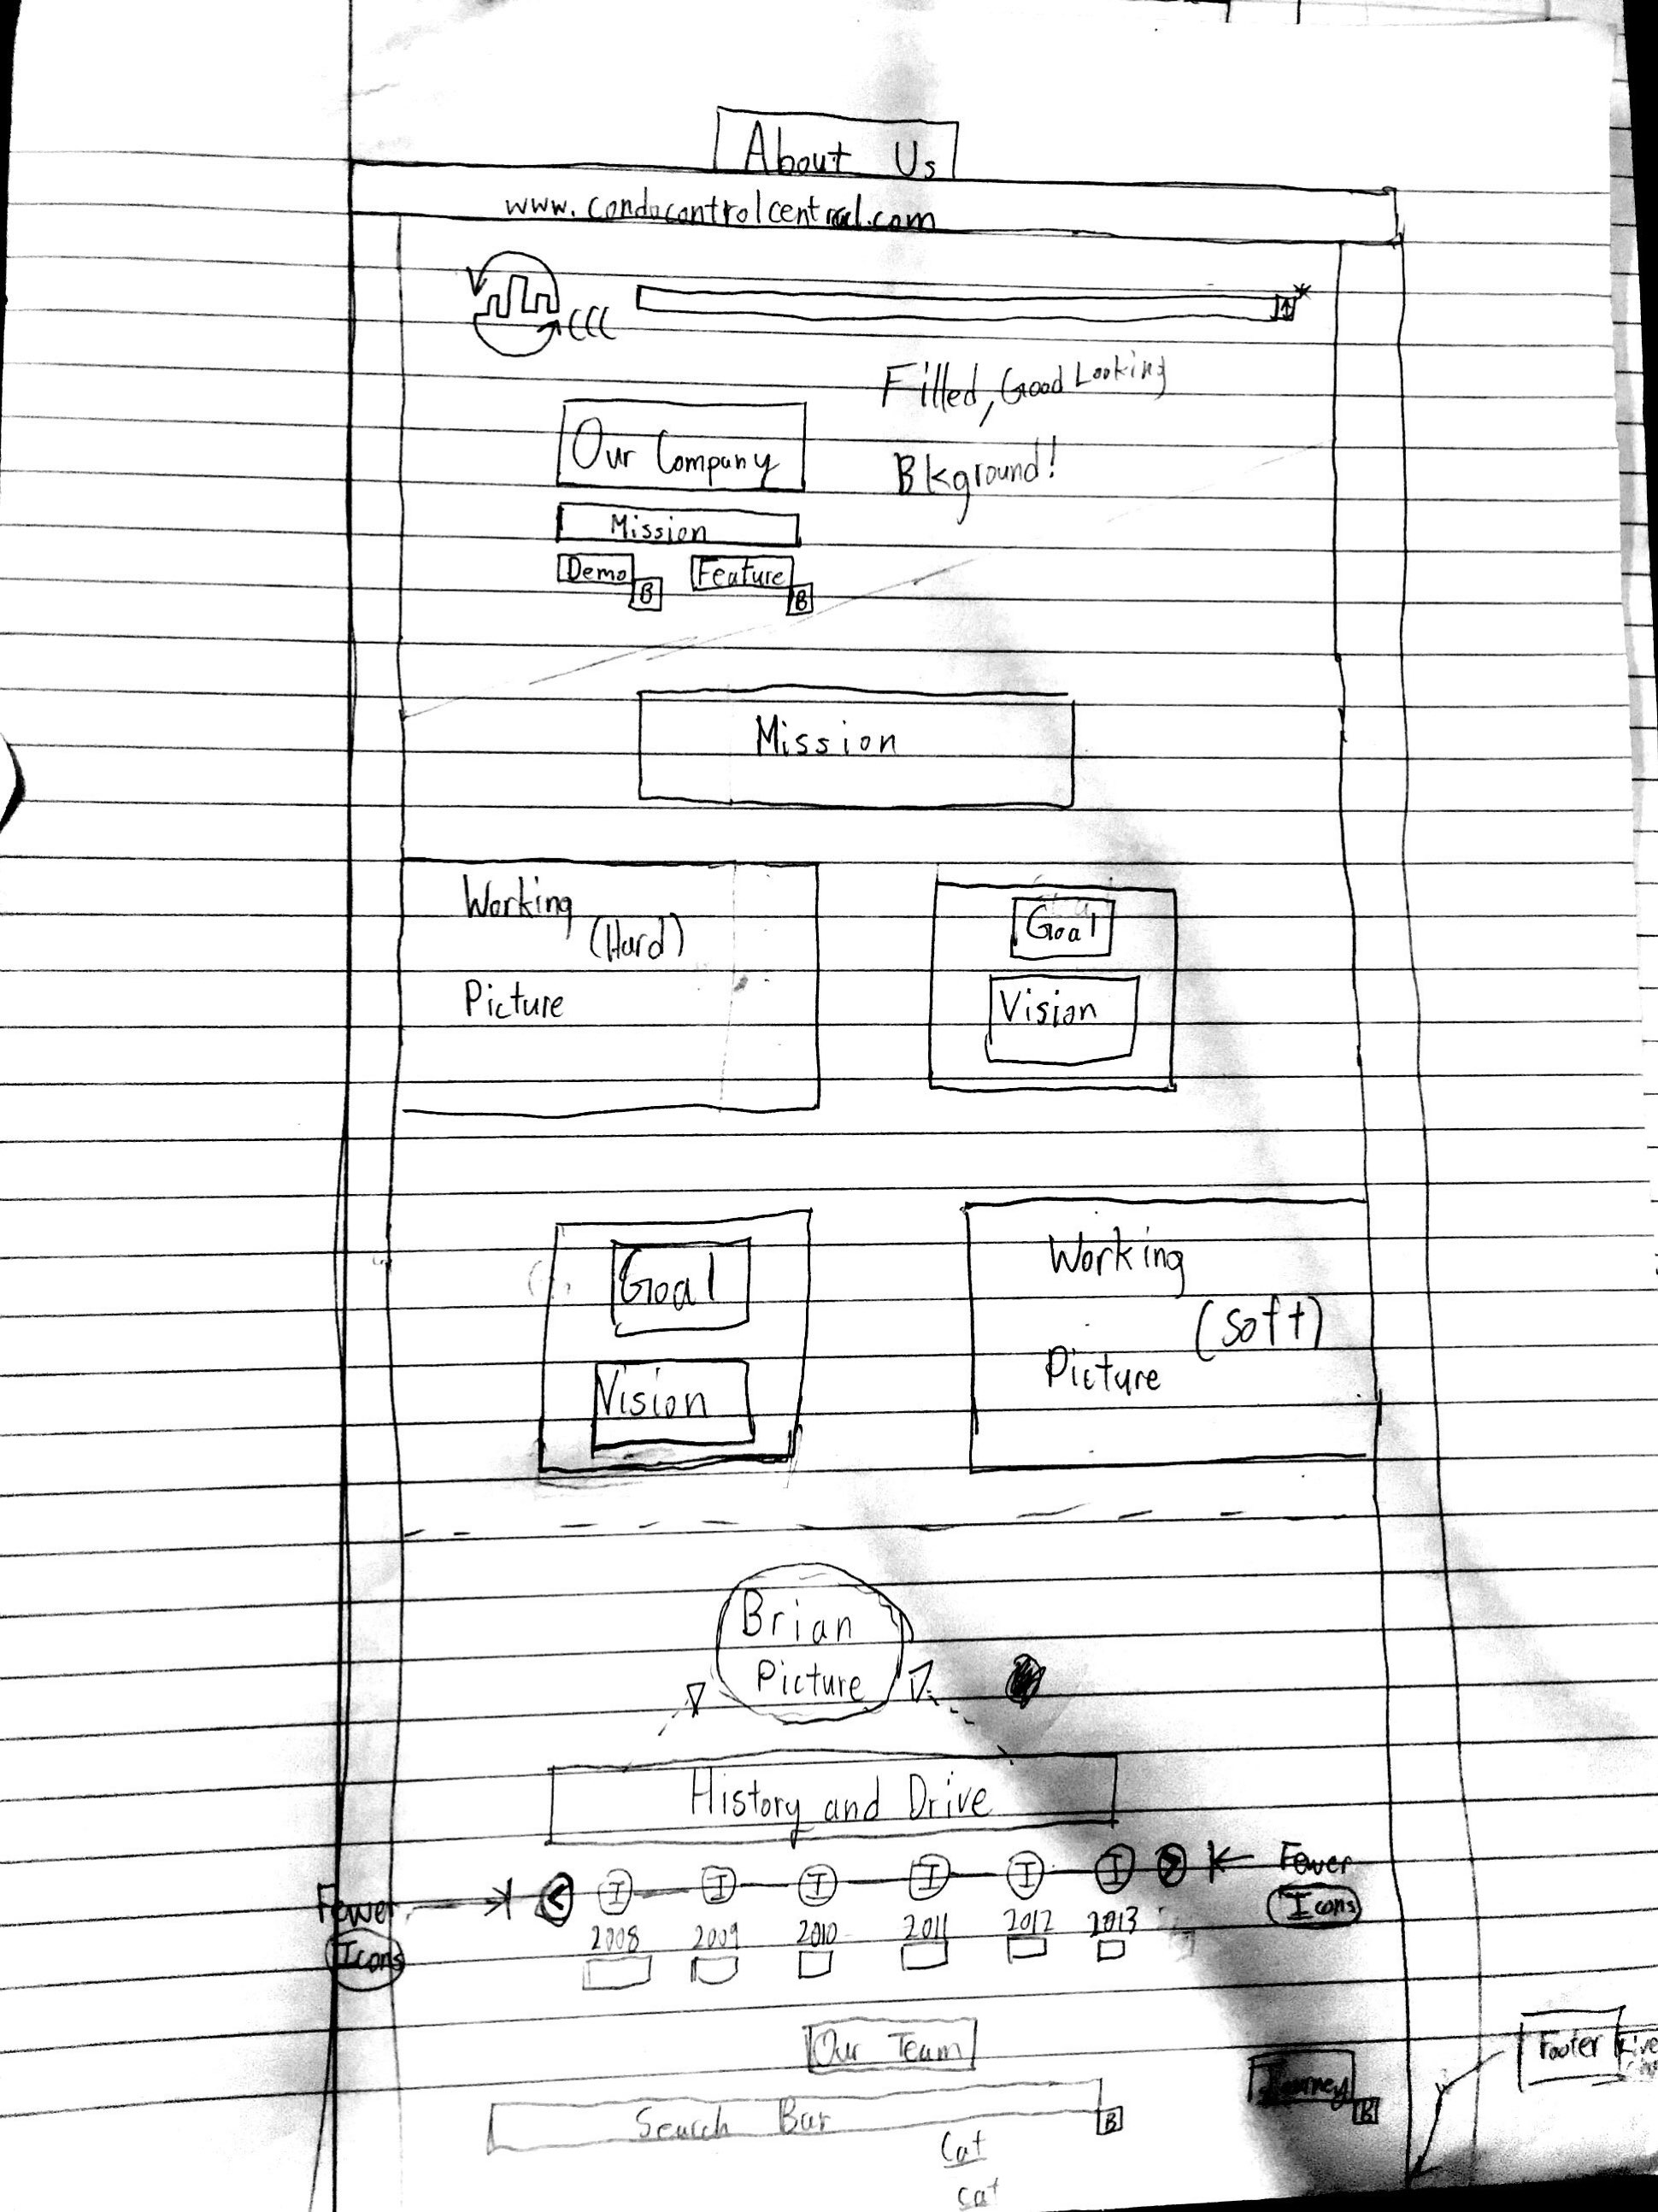 About Us
www.condocontrolcentral.com
CCC
Filled, Good Looking
Bkground!
Our Company
Mission
Demo
B
Feature
B
Mission
Working
(Hard)
Picture
Goal
Vision
Goal
Vision
Working
(Soft)
Picture
Brian
Picture
History and Drive
Fewer
Icons
<
I
I
I
I
I
I
>
Fewer
Icons
2008
2009
2010
2011
2012
2013
Our Team
Journey
B
Footer
Search Bar
B
Cat
cat